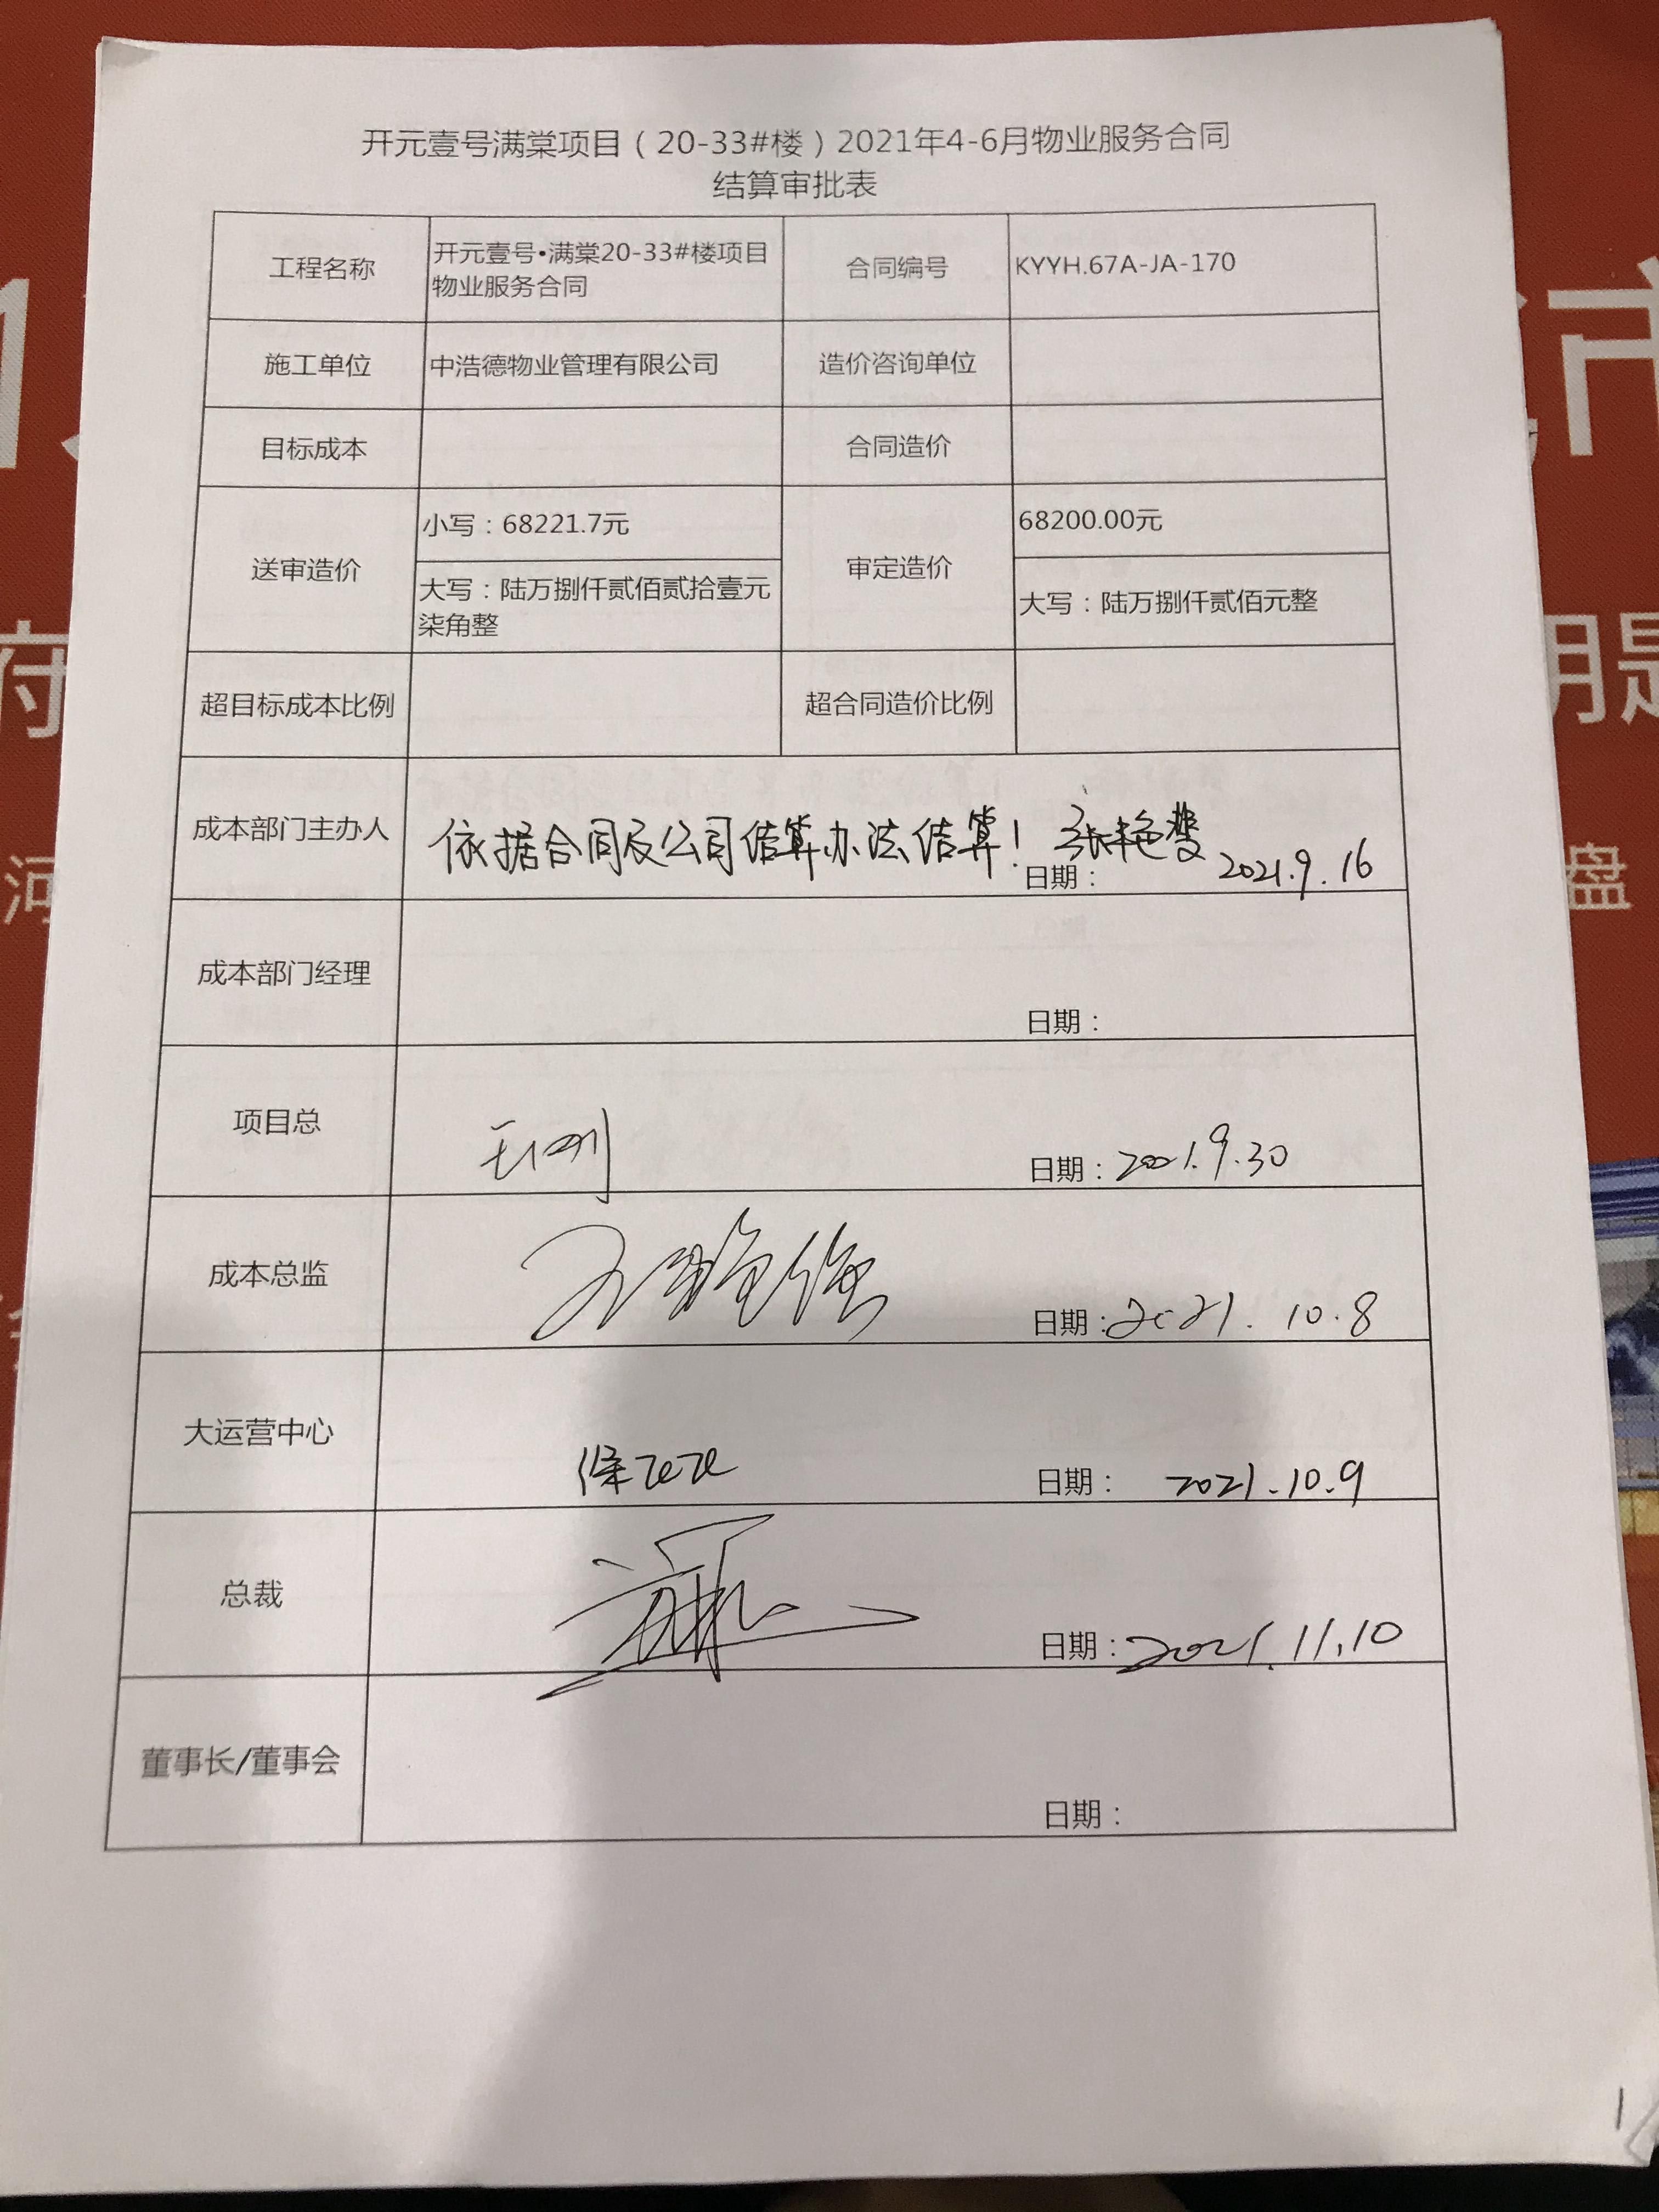 开元壹号满棠项目（20-33#楼）2021年4-6月物业服务合同
结算审批表
工程名称
开元壹号•满棠20-33#楼项目
物业服务合同
合同编号
KYYH.67A-JA-170
施工单位
中浩德物业管理有限公司
造价咨询单位
目标成本
合同造价
送审造价
小写：68221.7元
大写：陆万捌仟贰佰贰拾壹元
柒角整
审定造价
68200.00元
大写：陆万捌仟贰佰元整
超目标成本比例
超合同造价比例
成本部门主办人
依据合同及公司结算办法结算！
日期： 2021.9.16
成本部门经理
日期：
项目总
日期：2021.9.30
成本总监
日期：2021.10.8
大运营中心
日期： 2021.10.9
总裁
日期：2021.11.10
董事长/董事会
日期：
市
府
盘